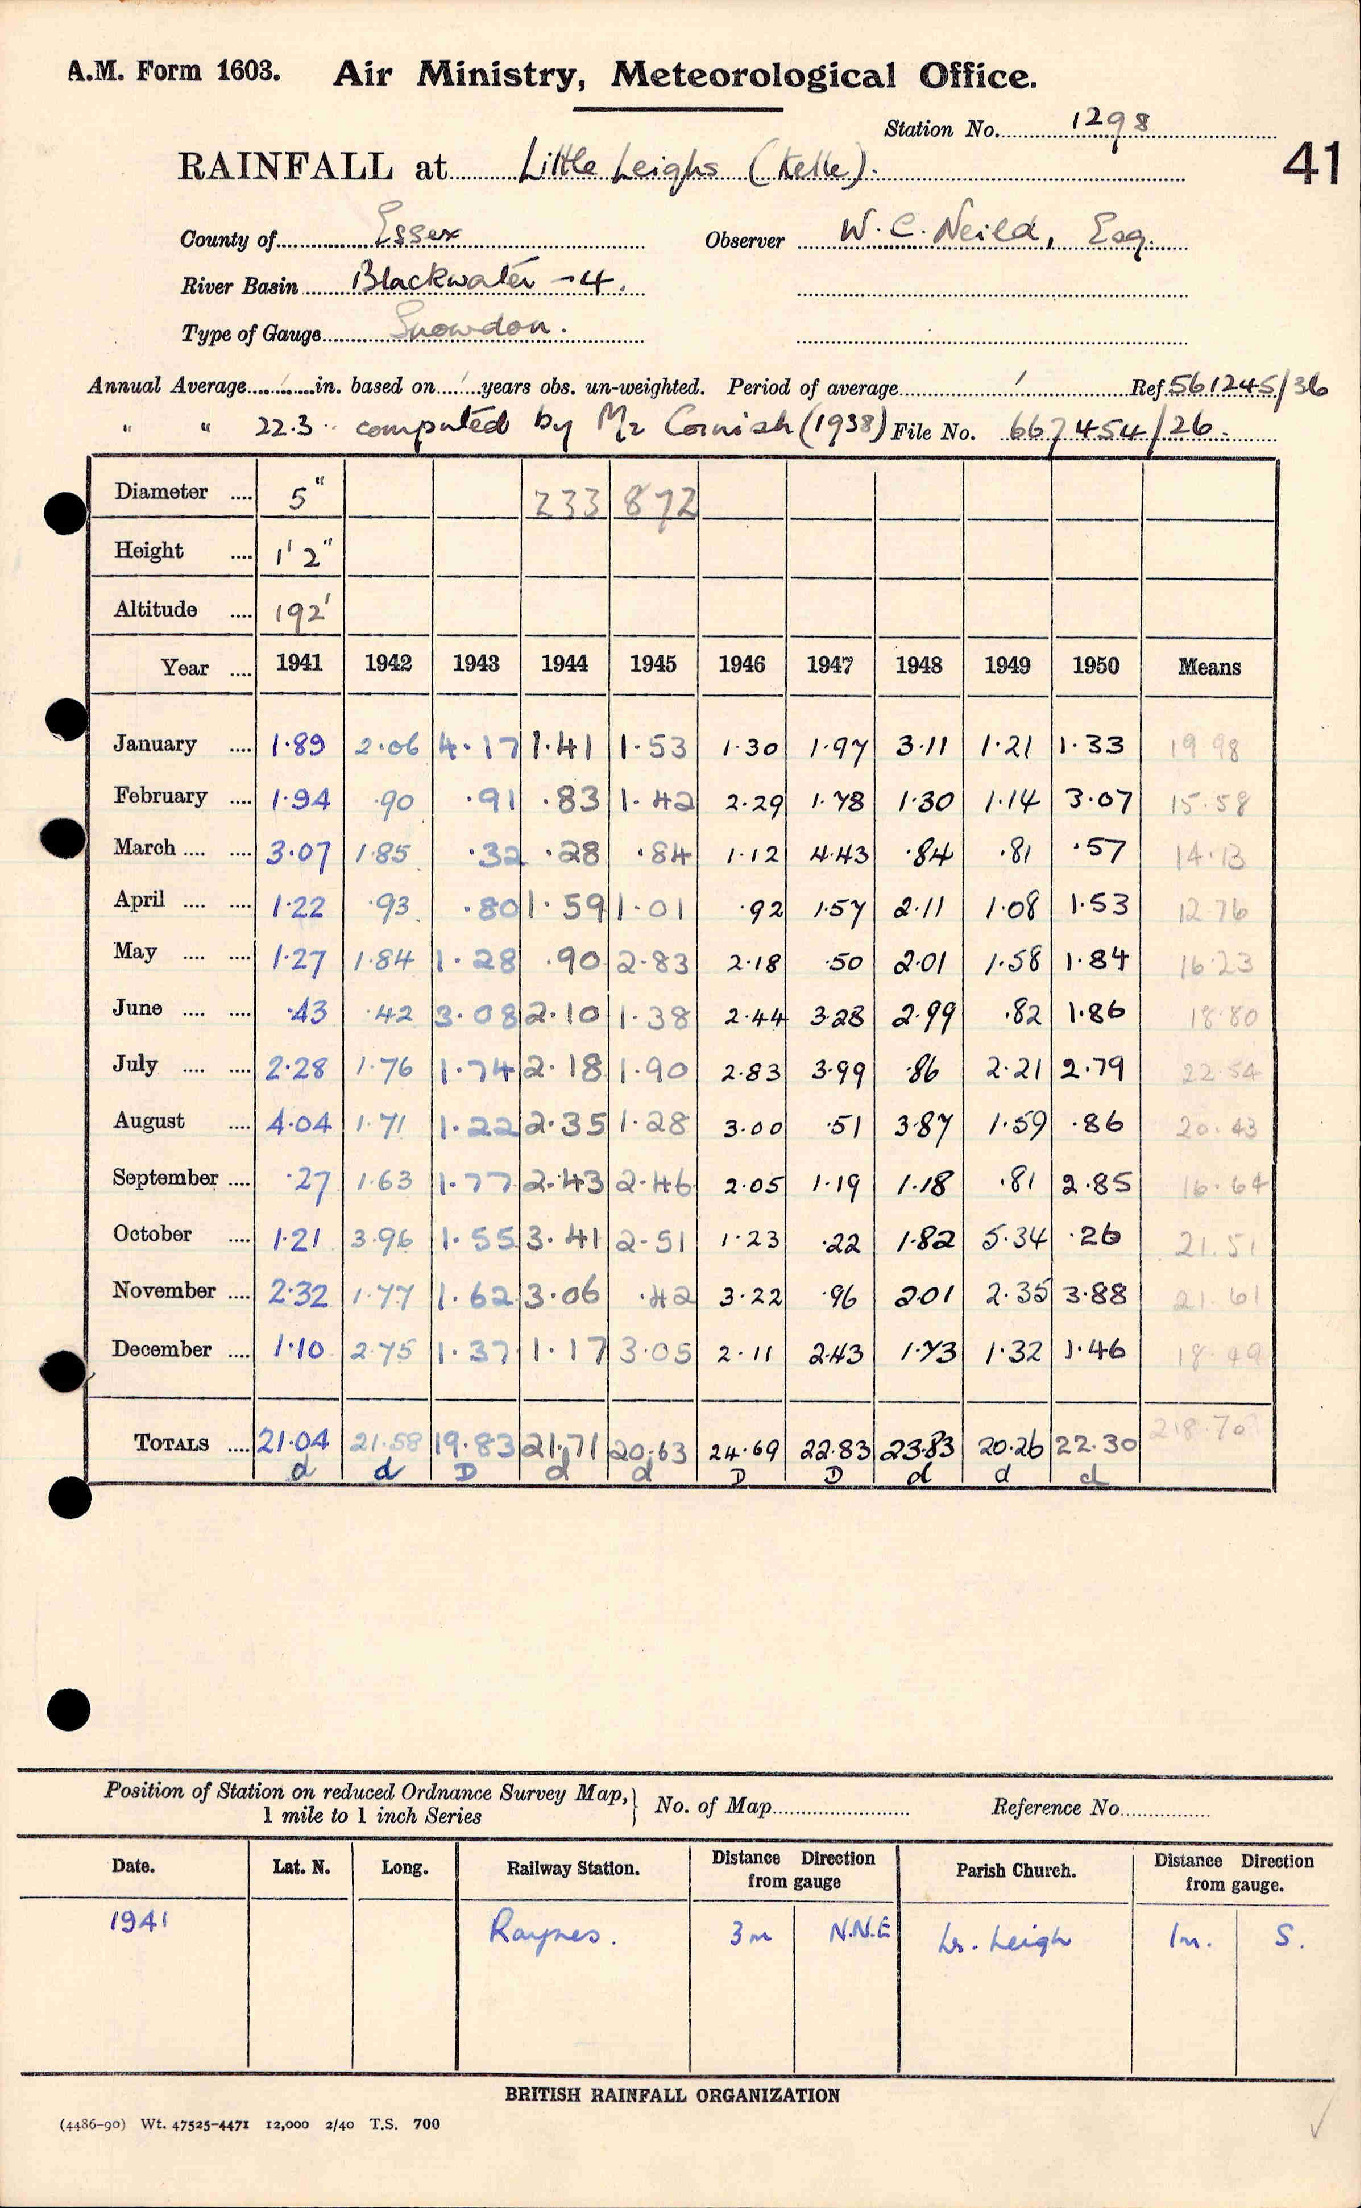 A.M. Form 1603. Air Ministry, Meteorological Office.
Station No. 1298
41
RAINFALL at Little Leighs (Kelle).
County of Essex Observer W. C. Neild, Esq.
River Basin Blackwater - 4.
Type of Gauge Snowdon.
Annual Average in. based on years obs. un-weighted. Period of average Ref 561245/36
" " 22.3 computed by Mr Cornish (1938) File No. 667454/26
Diameter .... 5" 233 872
Height .... 1' 2"
Altitude .... 192'
Year .... 1941 1942 1943 1944 1945 1946 1947 1948 1949 1950 Means
January .... 1.89 2.06 4.17 1.41 1.53 1.30 1.97 3.11 1.21 1.33 19.98
February .... 1.94 .90 .91 .83 1.42 2.29 1.78 1.30 1.14 3.07 15.58
March .... .... 3.07 1.85 .32 .28 .84 1.12 4.43 .84 .81 .57 14.13
April .... .... 1.22 .93 .80 1.59 1.01 .92 1.57 2.11 1.08 1.53 12.76
May .... .... 1.27 1.84 1.28 .90 2.83 2.18 .50 2.01 1.58 1.84 16.23
June .... .... .43 .42 3.08 2.10 1.38 2.44 3.28 2.99 .82 1.86 18.80
July .... .... 2.28 1.76 1.74 2.18 1.90 2.83 3.99 .86 2.21 2.79 22.54
August .... 4.04 1.71 1.22 2.35 1.28 3.00 .51 3.87 1.59 .86 20.43
September .... .27 1.63 1.77 2.43 2.46 2.05 1.19 1.18 .81 2.85 16.64
October .... 1.21 3.96 1.55 3.41 2.51 1.23 .22 1.82 5.34 .26 21.51
November .... 2.32 1.77 1.62 3.06 .42 3.22 .96 2.01 2.35 3.88 21.61
December .... 1.10 2.75 1.37 1.17 3.05 2.11 2.43 1.73 1.32 1.46 18.49
TOTALS .... 21.04 21.58 19.83 21.71 20.63 24.69 22.83 23.83 20.26 22.30 218.70
d d D d d D D d d d
Position of Station on reduced Ordnance Survey Map,} No. of Map Reference No.
1 mile to 1 inch Series
Date. Lat. N. Long. Railway Station. Distance Direction from gauge Parish Church. Distance Direction from gauge.
1941 Raynes. 3m N.N.E Lt. Leigh 1m. S.
BRITISH RAINFALL ORGANIZATION
(4486-90) Wt. 47525-4471 12,000 2/40 T.S. 700